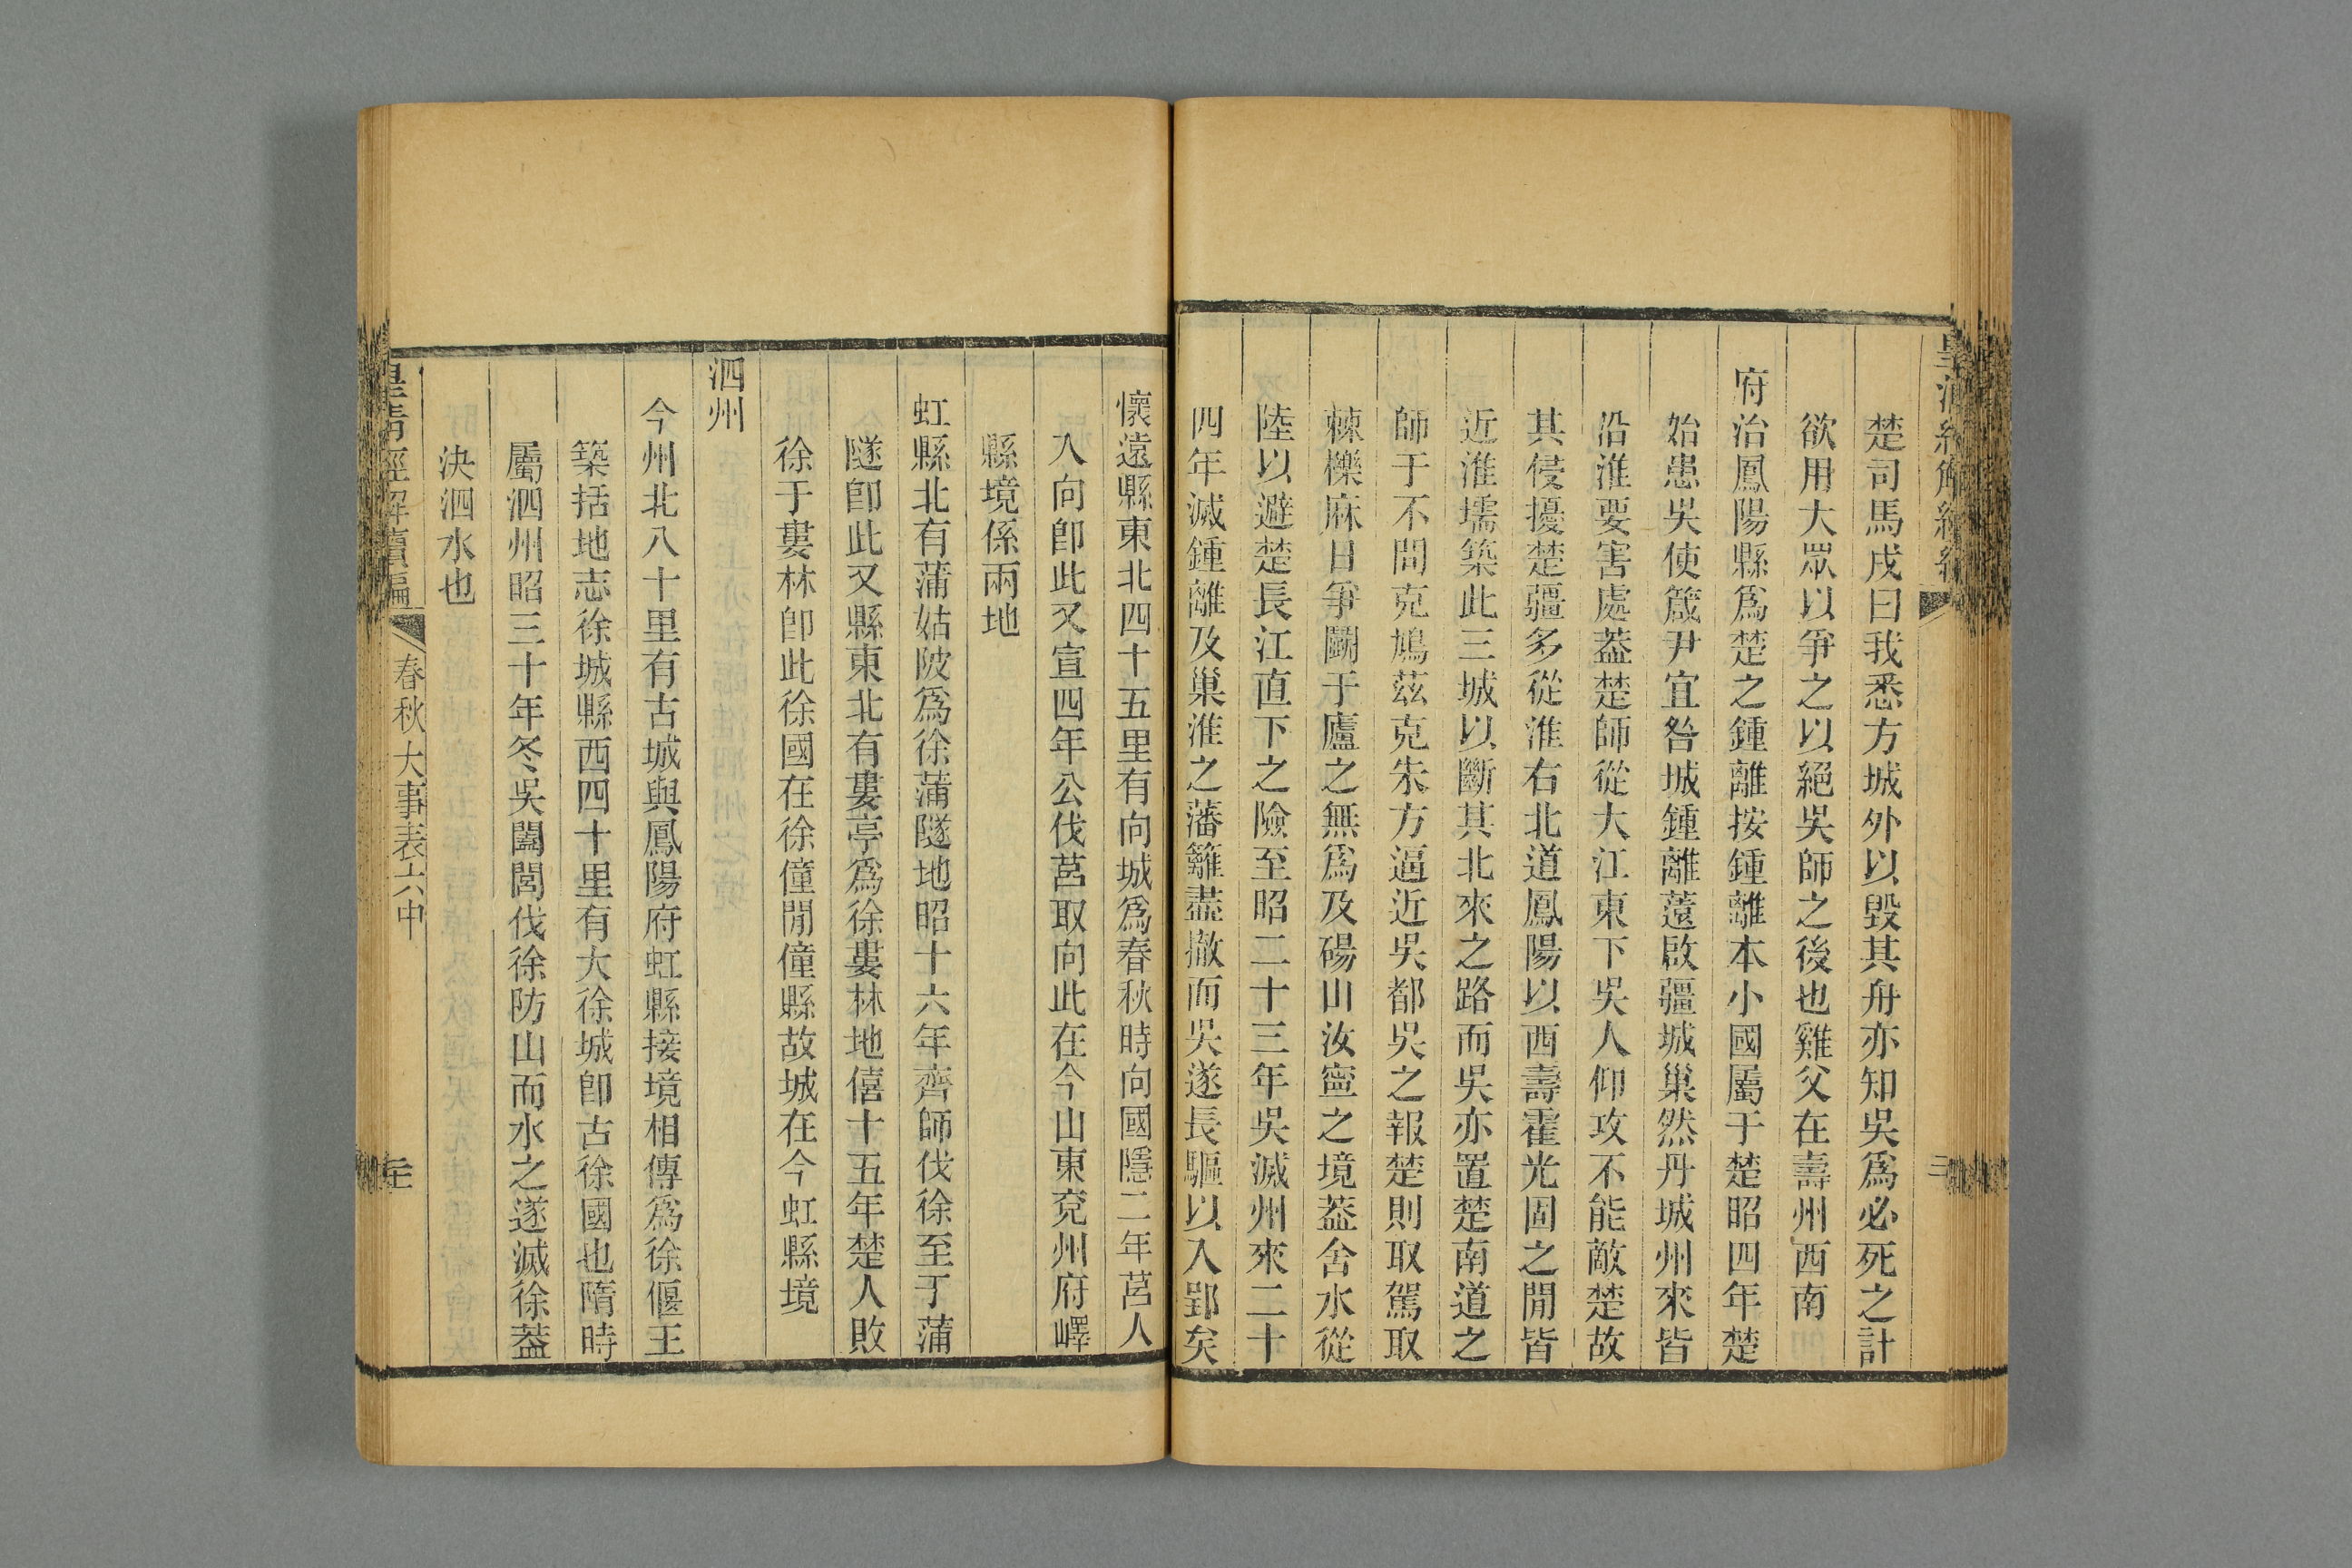 楚司馬戌曰我悉方城外以毀其舟亦知吳爲必死之計
欲用大眾以爭之以絕吳師之後也雞父在壽州西南
府治鳳陽縣爲楚之鍾離按鍾離本小國屬于楚昭四年楚
始患吳使箴尹宜咎城鍾離薳啟疆城巢然丹城州來皆
沿淮要害處葢楚師從大江東下吳人仰攻不能敵楚故
其侵擾楚疆多從淮右北道鳳陽以西壽霍光固之閒皆
近淮壖築此三城以斷其北來之路而吳亦置楚南道之
師于不問克鳩茲克朱方逼近吳都吳之報楚則取駕取
棘櫟麻日爭鬭于廬之無爲及碭山汝寧之境葢舍水從
陸以避楚長江直下之險至昭二十三年吳滅州來二十
四年滅鍾離及巢淮之藩籬盡撤而吳遂長驅以入郢矣
懷遠縣東北四十五里有向城爲春秋時向國隱二年莒人
入向卽此又宣四年公伐莒取向此在今山東兗州府嶧
縣境係兩地
虹縣北有蒲姑陂爲徐蒲隧地昭十六年齊師伐徐至于蒲
隧卽此又縣東北有婁亭爲徐婁林地僖十五年楚人敗
徐于婁林卽此徐國在徐僮閒僮縣故城在今虹縣境
泗州
今州北八十里有古城與鳳陽府虹縣接境相傳爲徐偃王
築括地志徐城縣西四十里有大徐城卽古徐國也隋時
屬泗州昭三十年冬吳闔閭伐徐防山而水之遂滅徐葢
決泗水也
皇清經解續編 春秋大事表六中